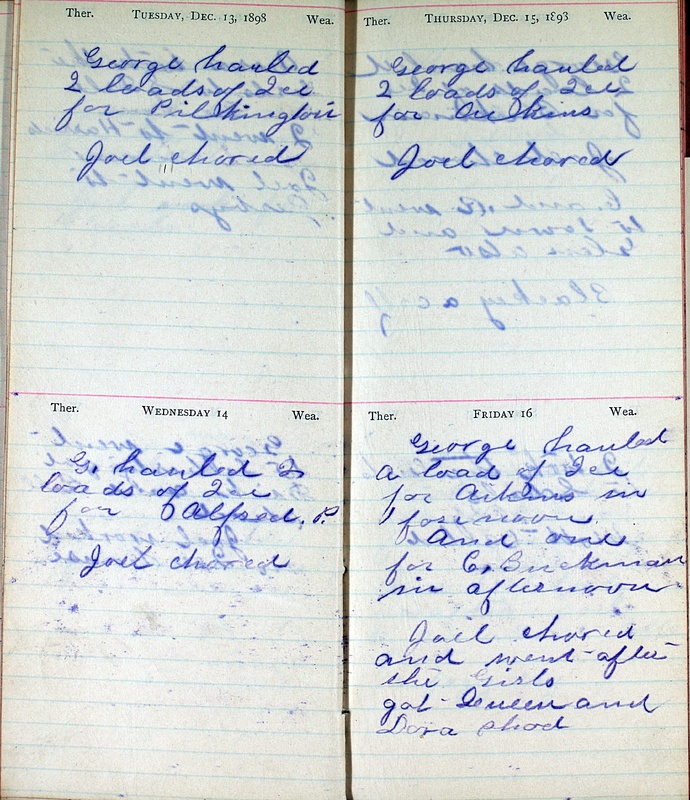 Ther. TUESDAY, DEC. 13, 1898 Wea.
George hauled
2 loads of Ice
for Pilkington
Joel chored
Ther. WEDNESDAY 14 Wea.
G. hauled 2
loads of Ice
for Alfred. P.
Joel chored
Ther. THURSDAY, DEC. 15, 1893 Wea.
George hauled
2 loads of Ice
for Aitkins
Joel chored
Ther. FRIDAY 16 Wea.
George hauled
a load of Ice
for Aitkins in
forenoon
and one
for C. Buckman
in afternoon
Joel chored
and went after
the Girls
got Queen and
Dora shod